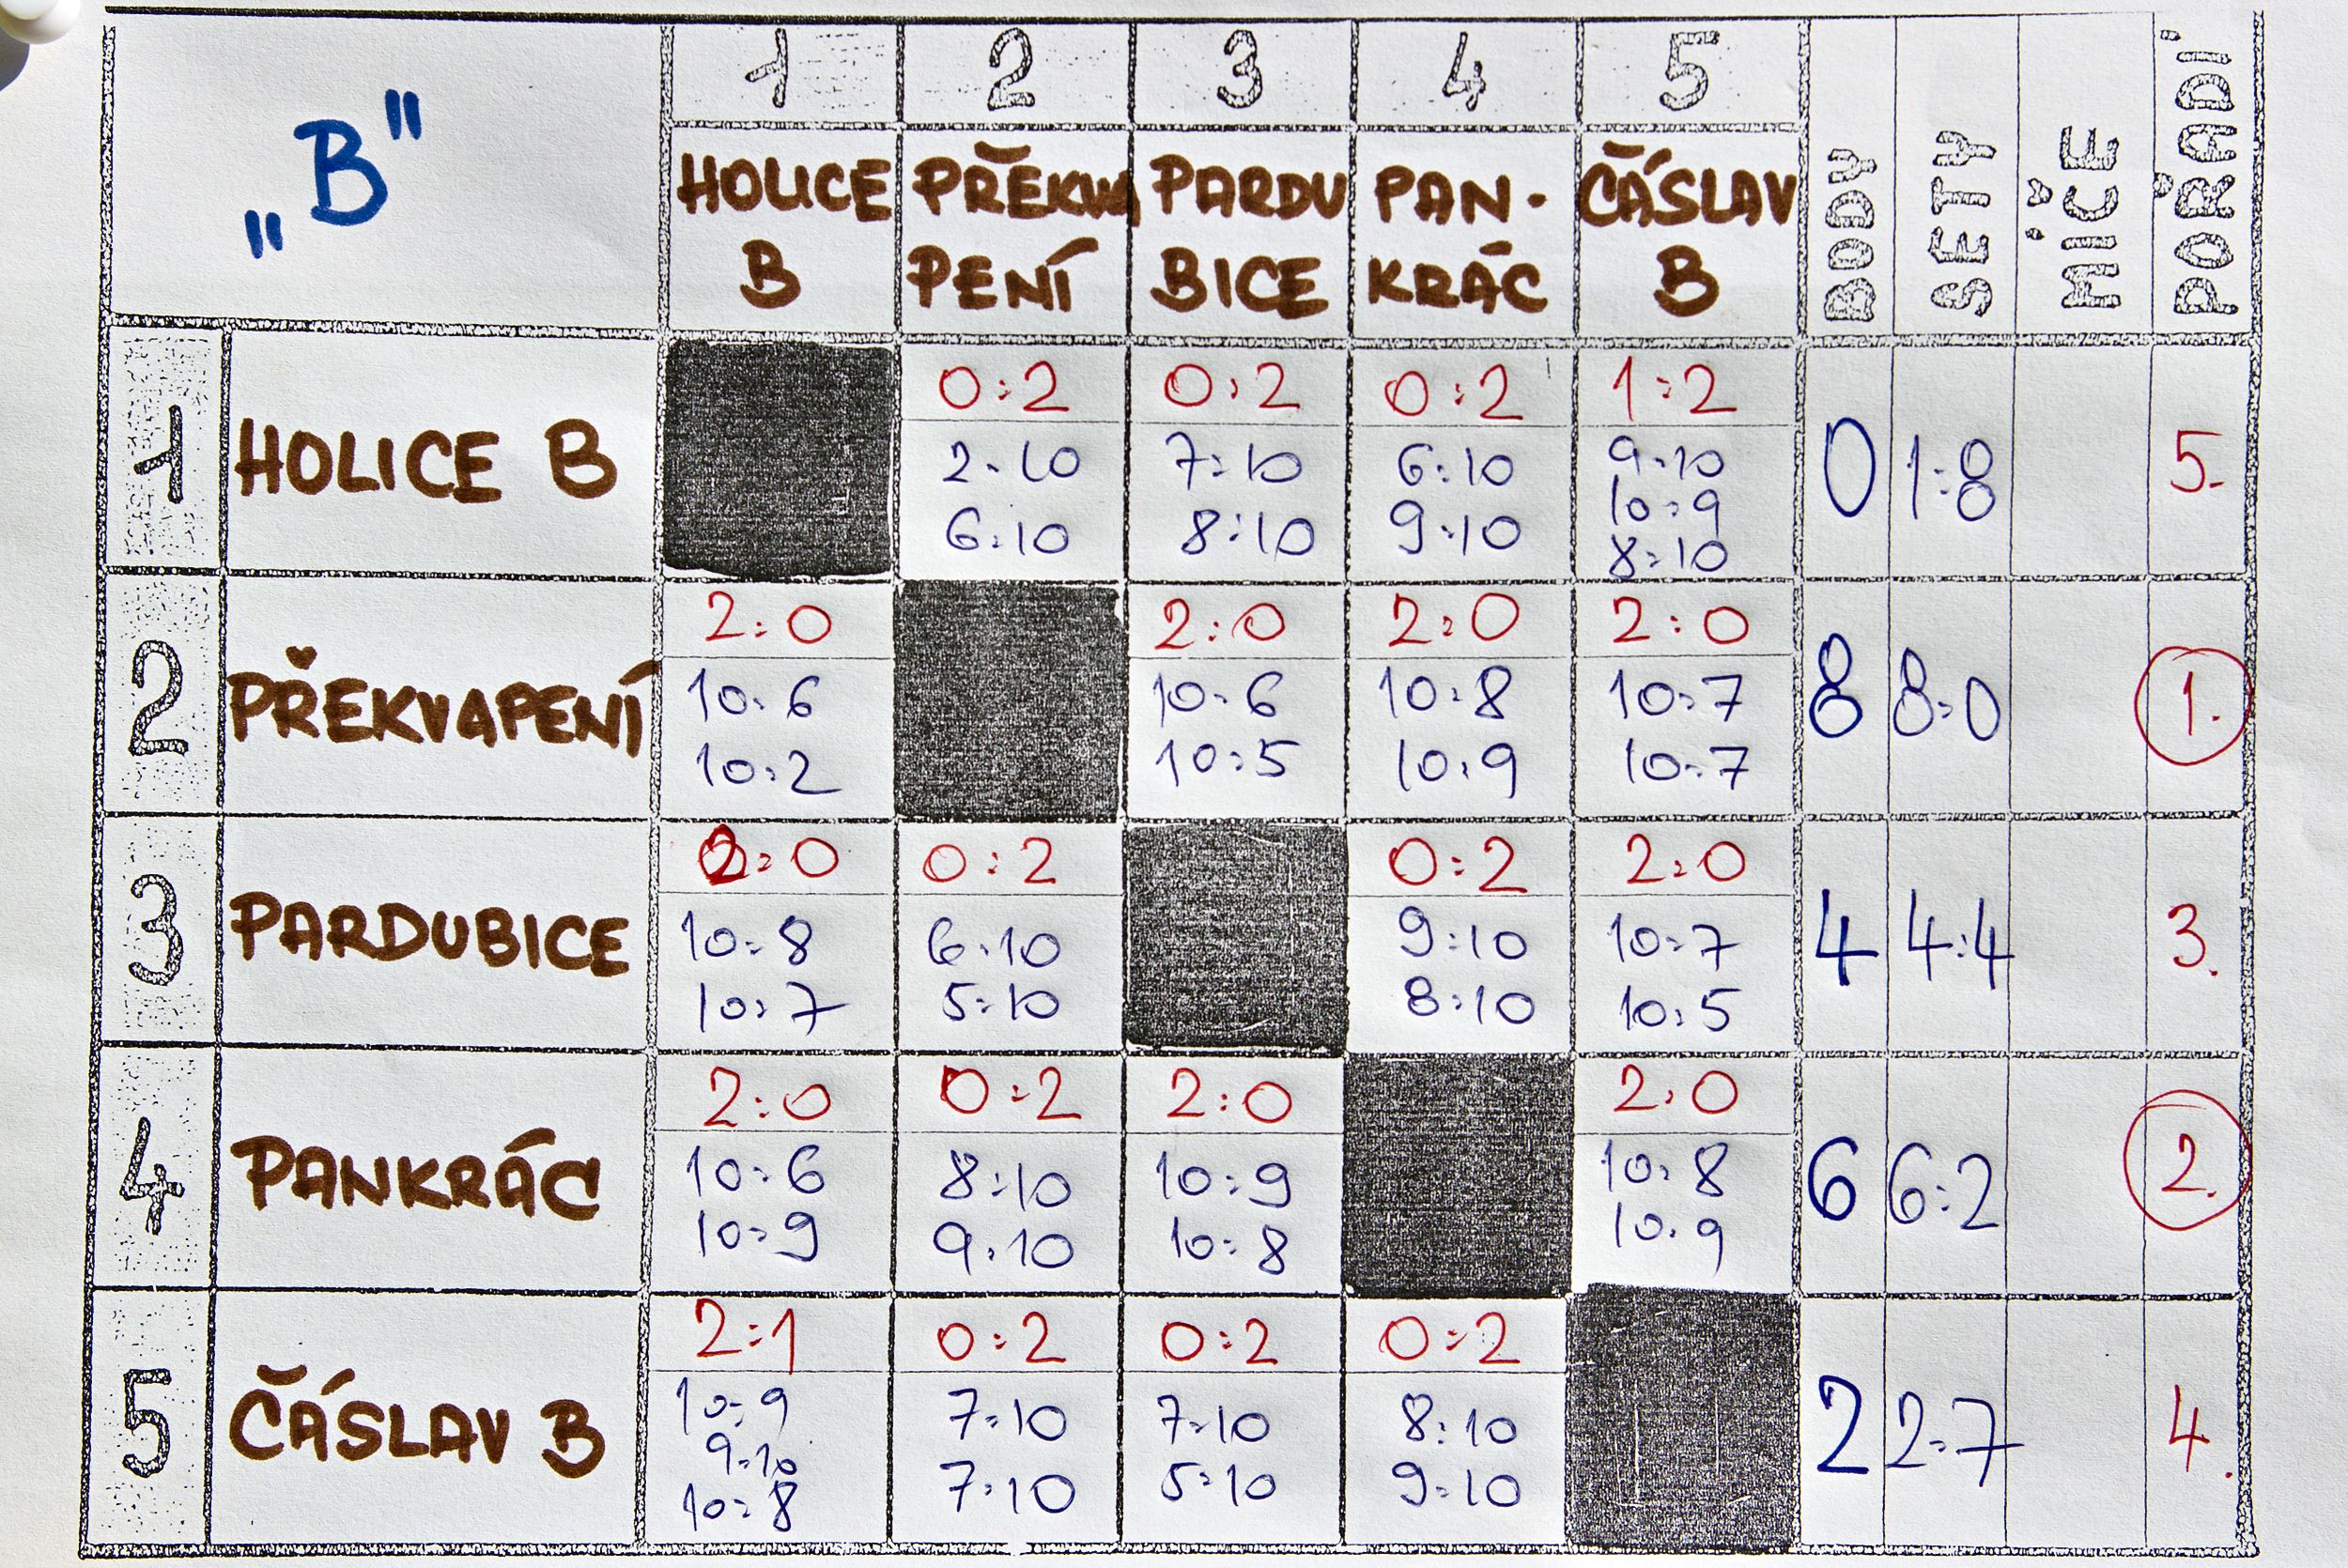 „B"
1 2 3 4 5
HOLICE B
PŘEKVA PENÍ
PARDU BICE
PAN- KRÁC
ČÁSLAV B
BODY
SETY
MÍČE
POŘADÍ
1 HOLICE B
0:2 0:2 0:2 1:2
2:10 7:10 6:10 9:10
10:9
6:10 8:10 9:10 8:10
0 1:8 5.
2 PŘEKVAPENÍ
2:0 2:0 2:0 2:0
10:6 10:6 10:8 10:7
10:2 10:5 10:9 10:7
8 8:0 1.
3 PARDUBICE
2:0 0:2 0:2 2:0
10:8 6:10 9:10 10:7
10:7 5:10 8:10 10:5
4 4:4 3.
4 PANKRÁC
2:0 0:2 2:0 2:0
10:6 8:10 10:9 10:8
10:9 9:10 10:8 10:9
6 6:2 2.
5 ČÁSLAV B
2:1 0:2 0:2 0:2
10:9 7:10 7:10 8:10
9:10
10:8 7:10 5:10 9:10
2 2:7 4.